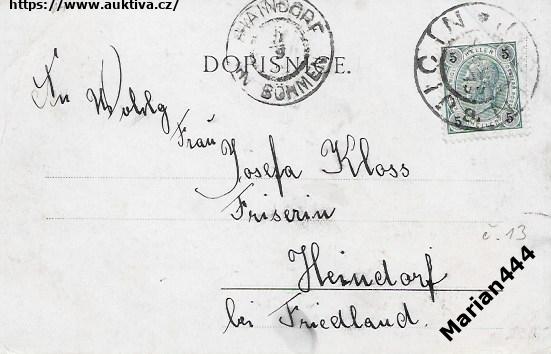 https://www.auktiva.cz/
HAINDORF
IN BÖHMEN
JIČIN
DOPISNICE.
5 HELLER 5
5 5
An Wohlg
Frau
Josefa Kloss
Friserin
Heindorf
bei Friedland.
č. 13
Marian444